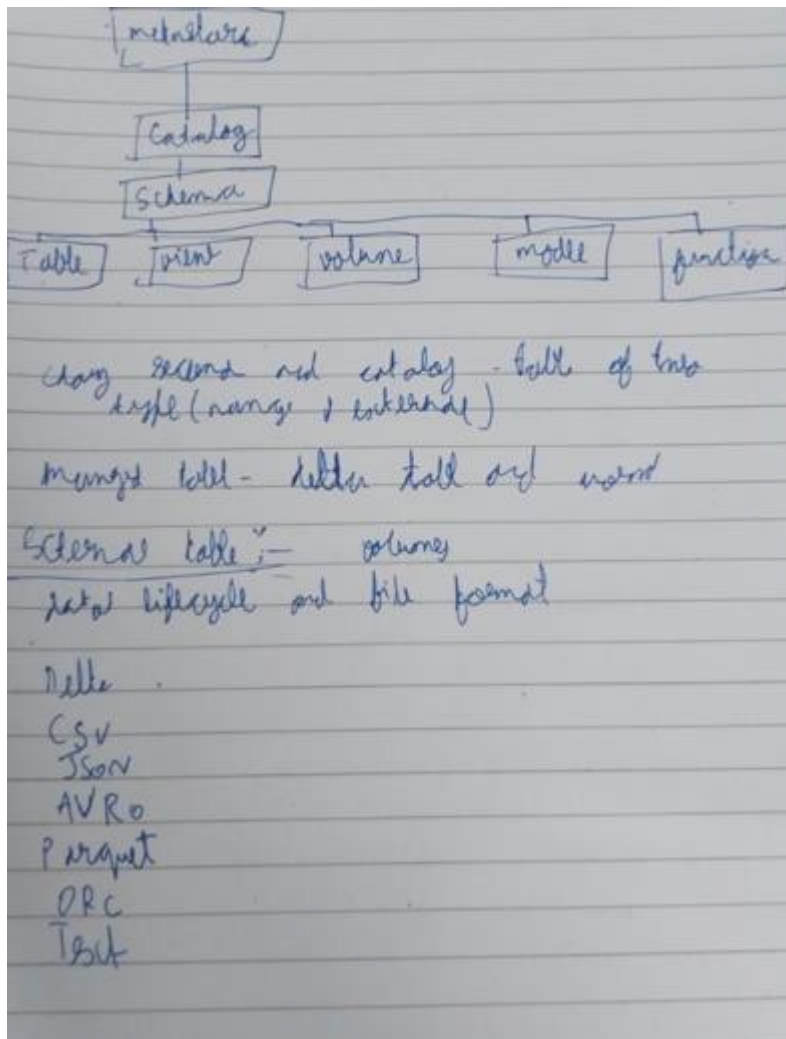 metastore
Catalog
Schema
Table view volume model function
second and catalog - table of two
type (manage & external)
managed table - delta table and
External table :- volumes
data lifecycle and file format
Delta
CSV
JSON
AVRO
Parquet
ORC
Text